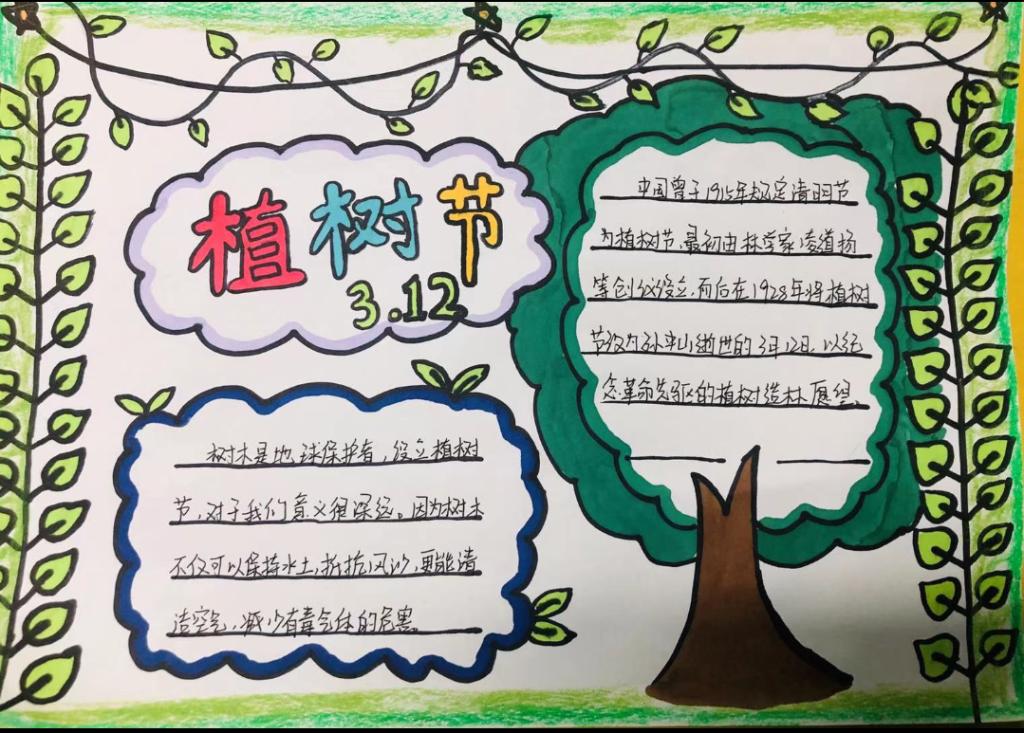 植树节
3.12
中国曾于1915年规定清明节
为植树节,最初由林学家凌道扬
等创议设立,而后在1928年将植树
节改为孙中山逝世的3月12日,以纪
念革命先驱的植树造林愿望。
树木是地球保护者,设立植树
节,对于我们意义很深远。因为树木
不仅可以保持水土,抵抗风沙,更能清
洁空气,减少有毒气体的危害。